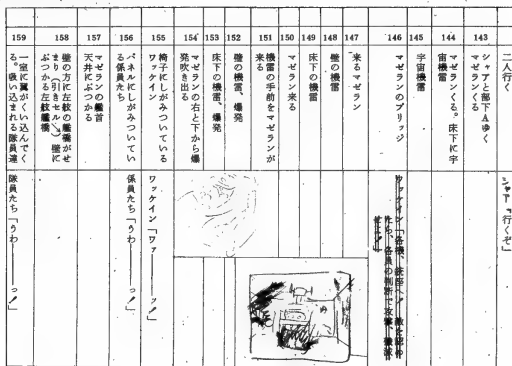 二人行く
シャア「行くぞ」
143
シャアと部下Aゆく
マゼランくる
144
マゼランくる。床下に宇
宙機雷
145
宇宙機雷
146
マゼランのブリッジ
ワッケイン「各機、銃座へ! 敵を認め
たら、各員の判断で攻撃、撃滅
147
来るマゼラン
148
壁の機雷
149
床下の機雷
150
マゼラン来る
151
機雷の手前をマゼランが
来る
152
壁の機雷、爆発
153
床下の機雷、爆発
154
マゼランの右と下から爆
発吹き出る
155
椅子にしがみついている
ワッケイン
ワッケイン「ワァ――ッ!」
156
パネルにしがみついてい
る係員たち
係員たち「うわ――っ!」
157
マゼランの艦首
天井にぶつかる
158
壁の方に左舷の艦橋がせ
まり(引きセル)壁に
ぶつかる左舷艦橋
159
一室に翼がくい込んでく
る。吸い込まれる隊員達
隊員たち「うわ――っ!」